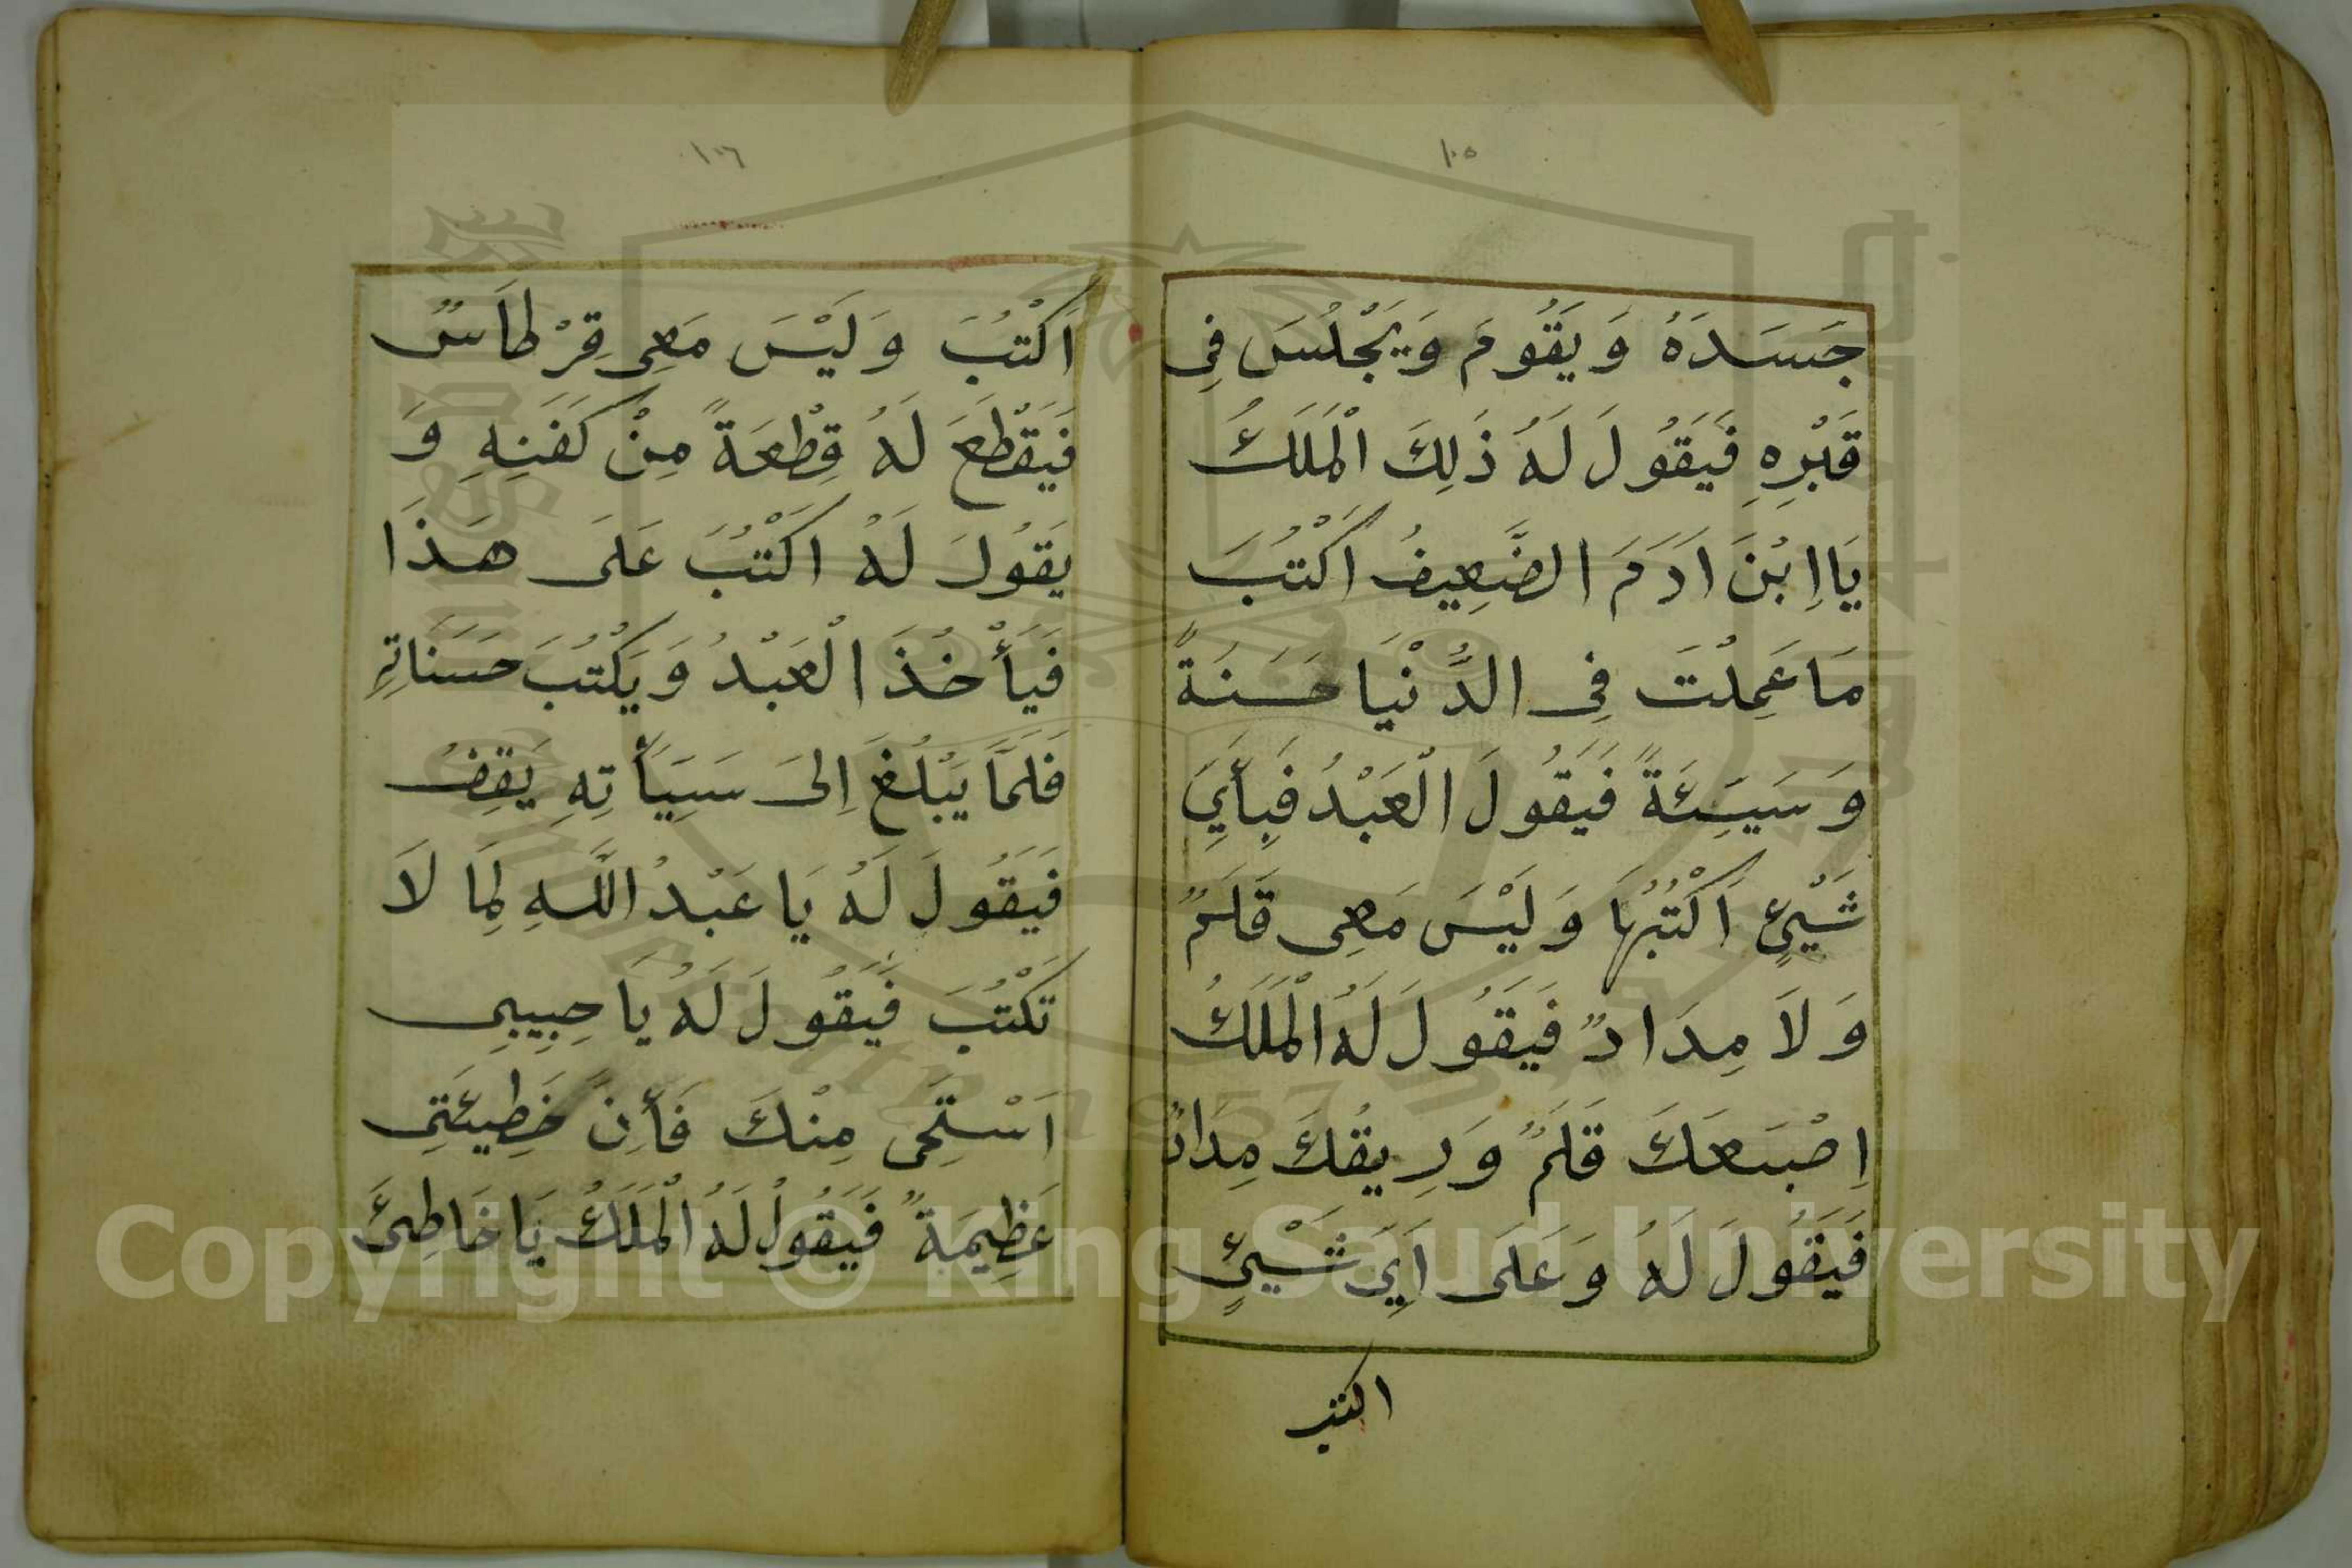 ١٠٥
جَسَدَهُ وَيَقُومَ وَيَجْلُسَ فِى
قَبْرِهِ فَيَقُولَ لَهُ ذَلِكَ الْمَلَكُ
يَا اِبْنَ اَدَمَ الضَّعِيفُ اَكْتُبَ
مَا عَمِلْتَ فِى الدُّنْيَا حَسَنَةً
وَسَيِئَةً فَيَقُولَ الْعَبْدُ فَبِأَيِّ
شَيْئٍ اَكْتُبُهَا وَلَيْسَ مَعِى قَلَمٌ
وَلَا مِدَادٌ فَيَقُولَ لَهُ الْمَلَكُ
اِصْبَعَكَ قَلَمٌ وَرِيقُكَ مِدَادٌ
فَيَقُولَ لَهُ وَعَلَى اَيِّ شَيْئٍ
اكتب
١٠٦
اَكْتُبَ وَلَيْسَ مَعِى قِرْطَاسٌ
فَيَقْطَعَ لَهُ قِطْعَةً مِنْ كَفَنِهِ وَ
يَقُولَ لَهُ اكْتُبَ عَلَى هَذَا
فَيَأْخُذَ الْعَبْدُ وَيَكْتُبَ حَسَنَاتِهِ
فَلَمَّا يَبْلُغَ اِلَى سَيِيَأتِهِ يَقِفُ
فَيَقُولَ لَهُ يَا عَبْدُ اللَّهِ لِمَا لَا
تَكْتُبَ فَيَقُولَ لَهُ يَا حِبِيبِى
اَسْتَحِى مِنْكَ فَأِنَ خَطِيئَتِى
عَظِيمَةٌ فَيَقُولُ لَهُ الْمَلَكُ يَا خَاطِئَ
Copyright © King Saud University